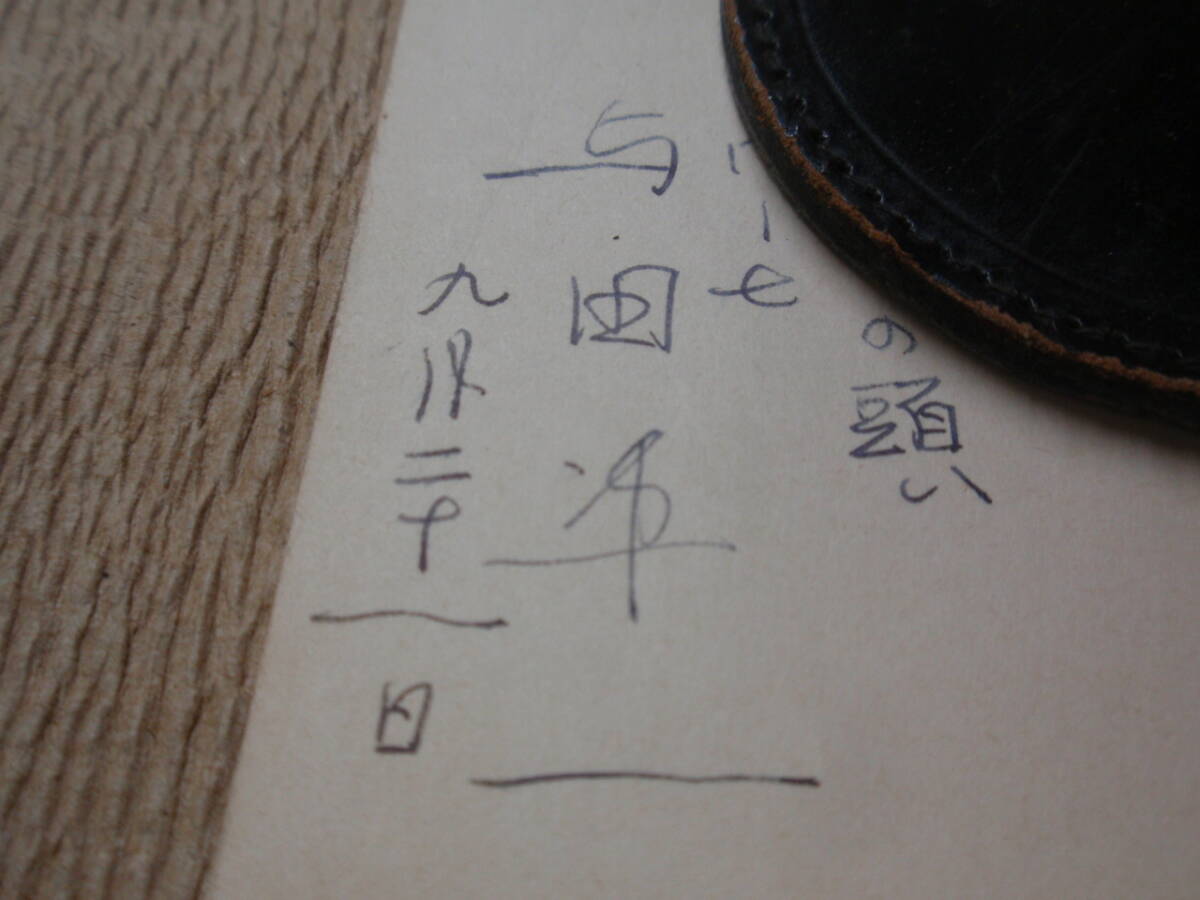 の願い
与田凖一
九月二十一日